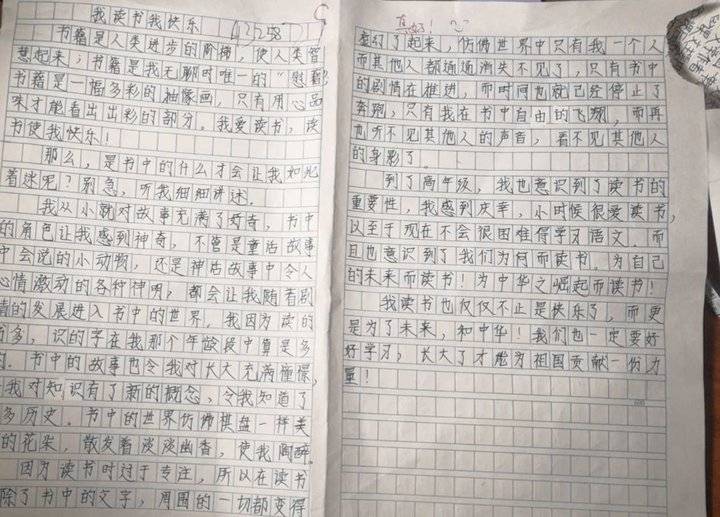 我读书我快乐
书籍是人类进步的阶梯，使人类智
慧起来；书籍是我无聊时唯一的“慰藉”
书籍是一幅多彩的抽像画，只有用心品
味才能看出出彩的部分。我爱读书，读
书使我快乐！
那么，是书中的什么才会让我如此
着迷呢？别急，听我细细讲述。
我从小就对故事充满了好奇，书中
的角色让我感到神奇，不管是童话故事
中会说的小动物，还是神话故事中令人
心情激动的各种神明，都会让我随着剧
情的发展进入书中的世界。我因为读的
书多，识的字在我那个年龄段中算是多
的．书中的故事也令我对长大充满憧憬，
我对知识有了新的概念，令我知道了
多历史。书中的世界仿佛棋盘一样美
的花朵，散发着淡淡幽香，使我陶醉。
因为读书时过于专注，所以在读书
除了书中的文字，周围的一切都变得
真好！
虚幻了起来，仿佛世界中只有我一个人
而其他人都通通消失不见了，只有书中
的剧情在推进，而时间也就已经停止了
奔跑，只有我在书中自由的飞翔，而再
也听不见其他人的声音，看不见其他人
的身影了。
到了高年级，我也意识到了读书的
重要性，我感到庆幸，小时候很爱读书，
以至于现在不会很困难得学习语文。而
且也意识到了我们为何而读书。为自己
的未来而读书！为中华之崛起而读书！
我读书也仅仅不止是快乐了，而更
是为了未来，和中华！我们也一定要好
好学习，长大了才能为祖国贡献一份力
量！